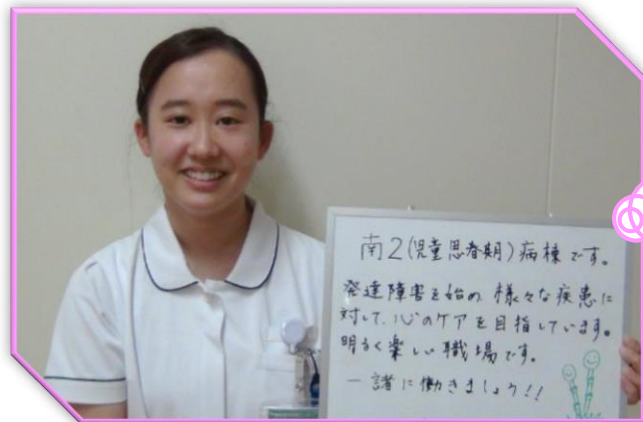 南2(児童思春期)病棟です。
発達障害を始め 様々な疾患に
対して、心のケアを目指しています。
明るく楽しい職場です。
一諸に働きましょう!!